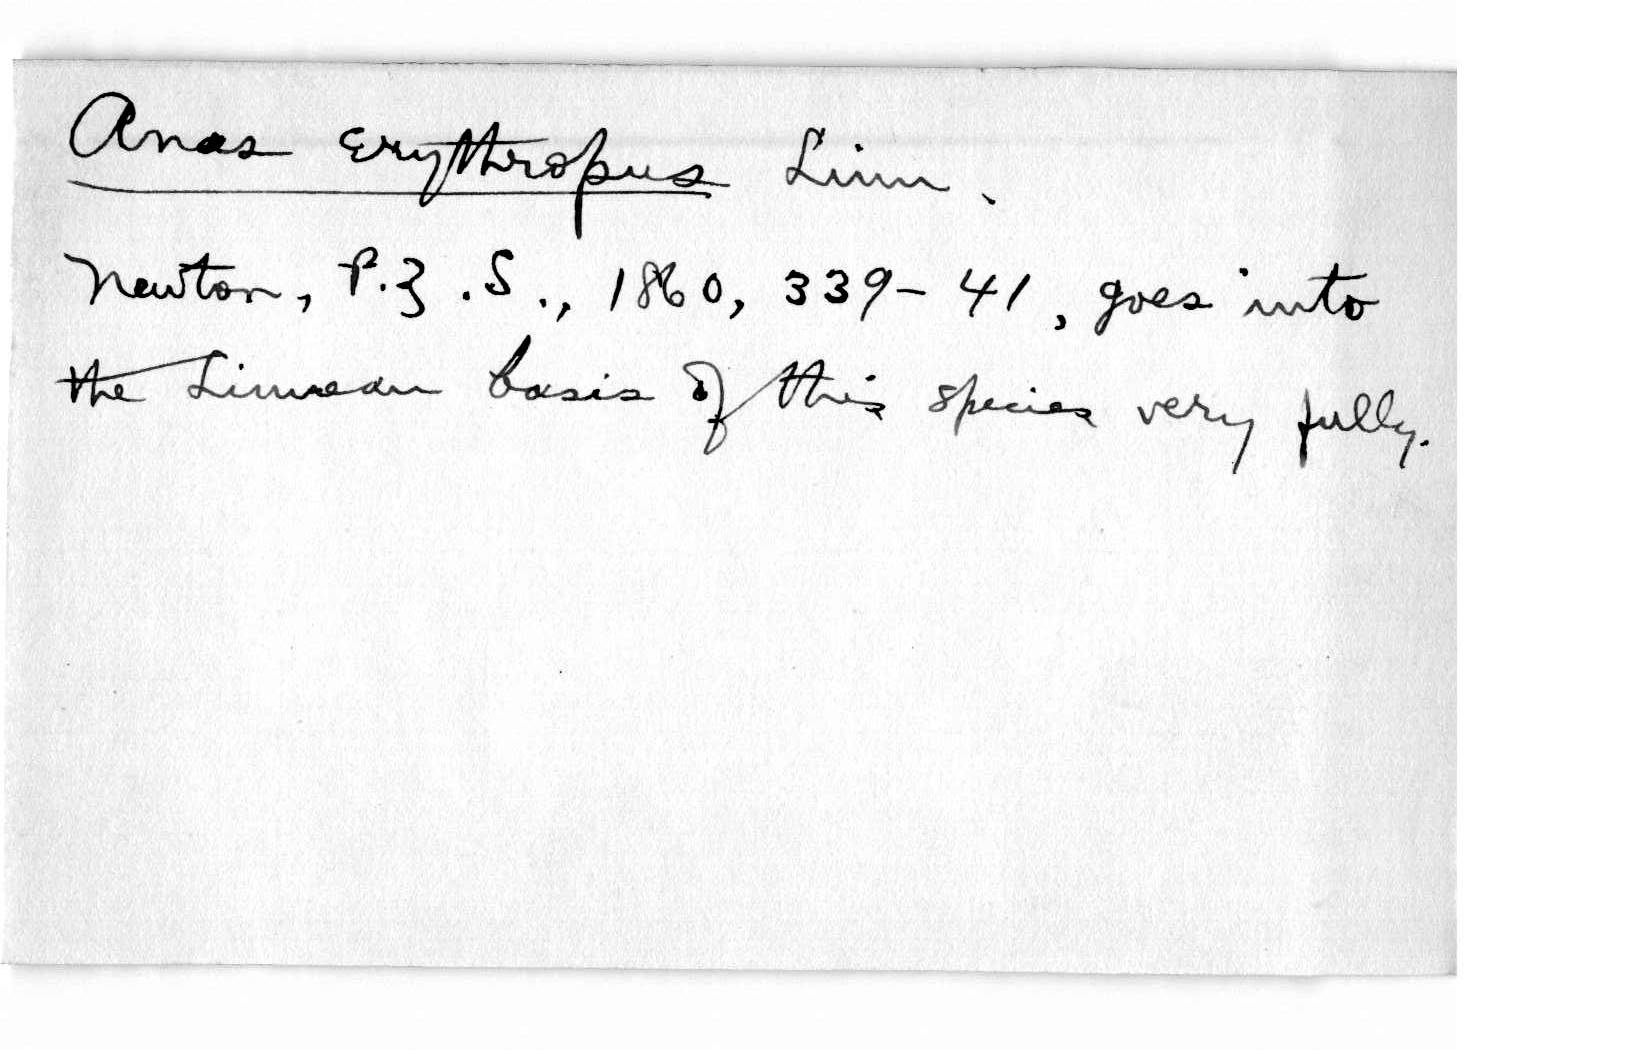 Anas erythropus Linn.
Newton, P.Z.S., 1860, 339-41, goes into
the Linnean basis of this species very fully.